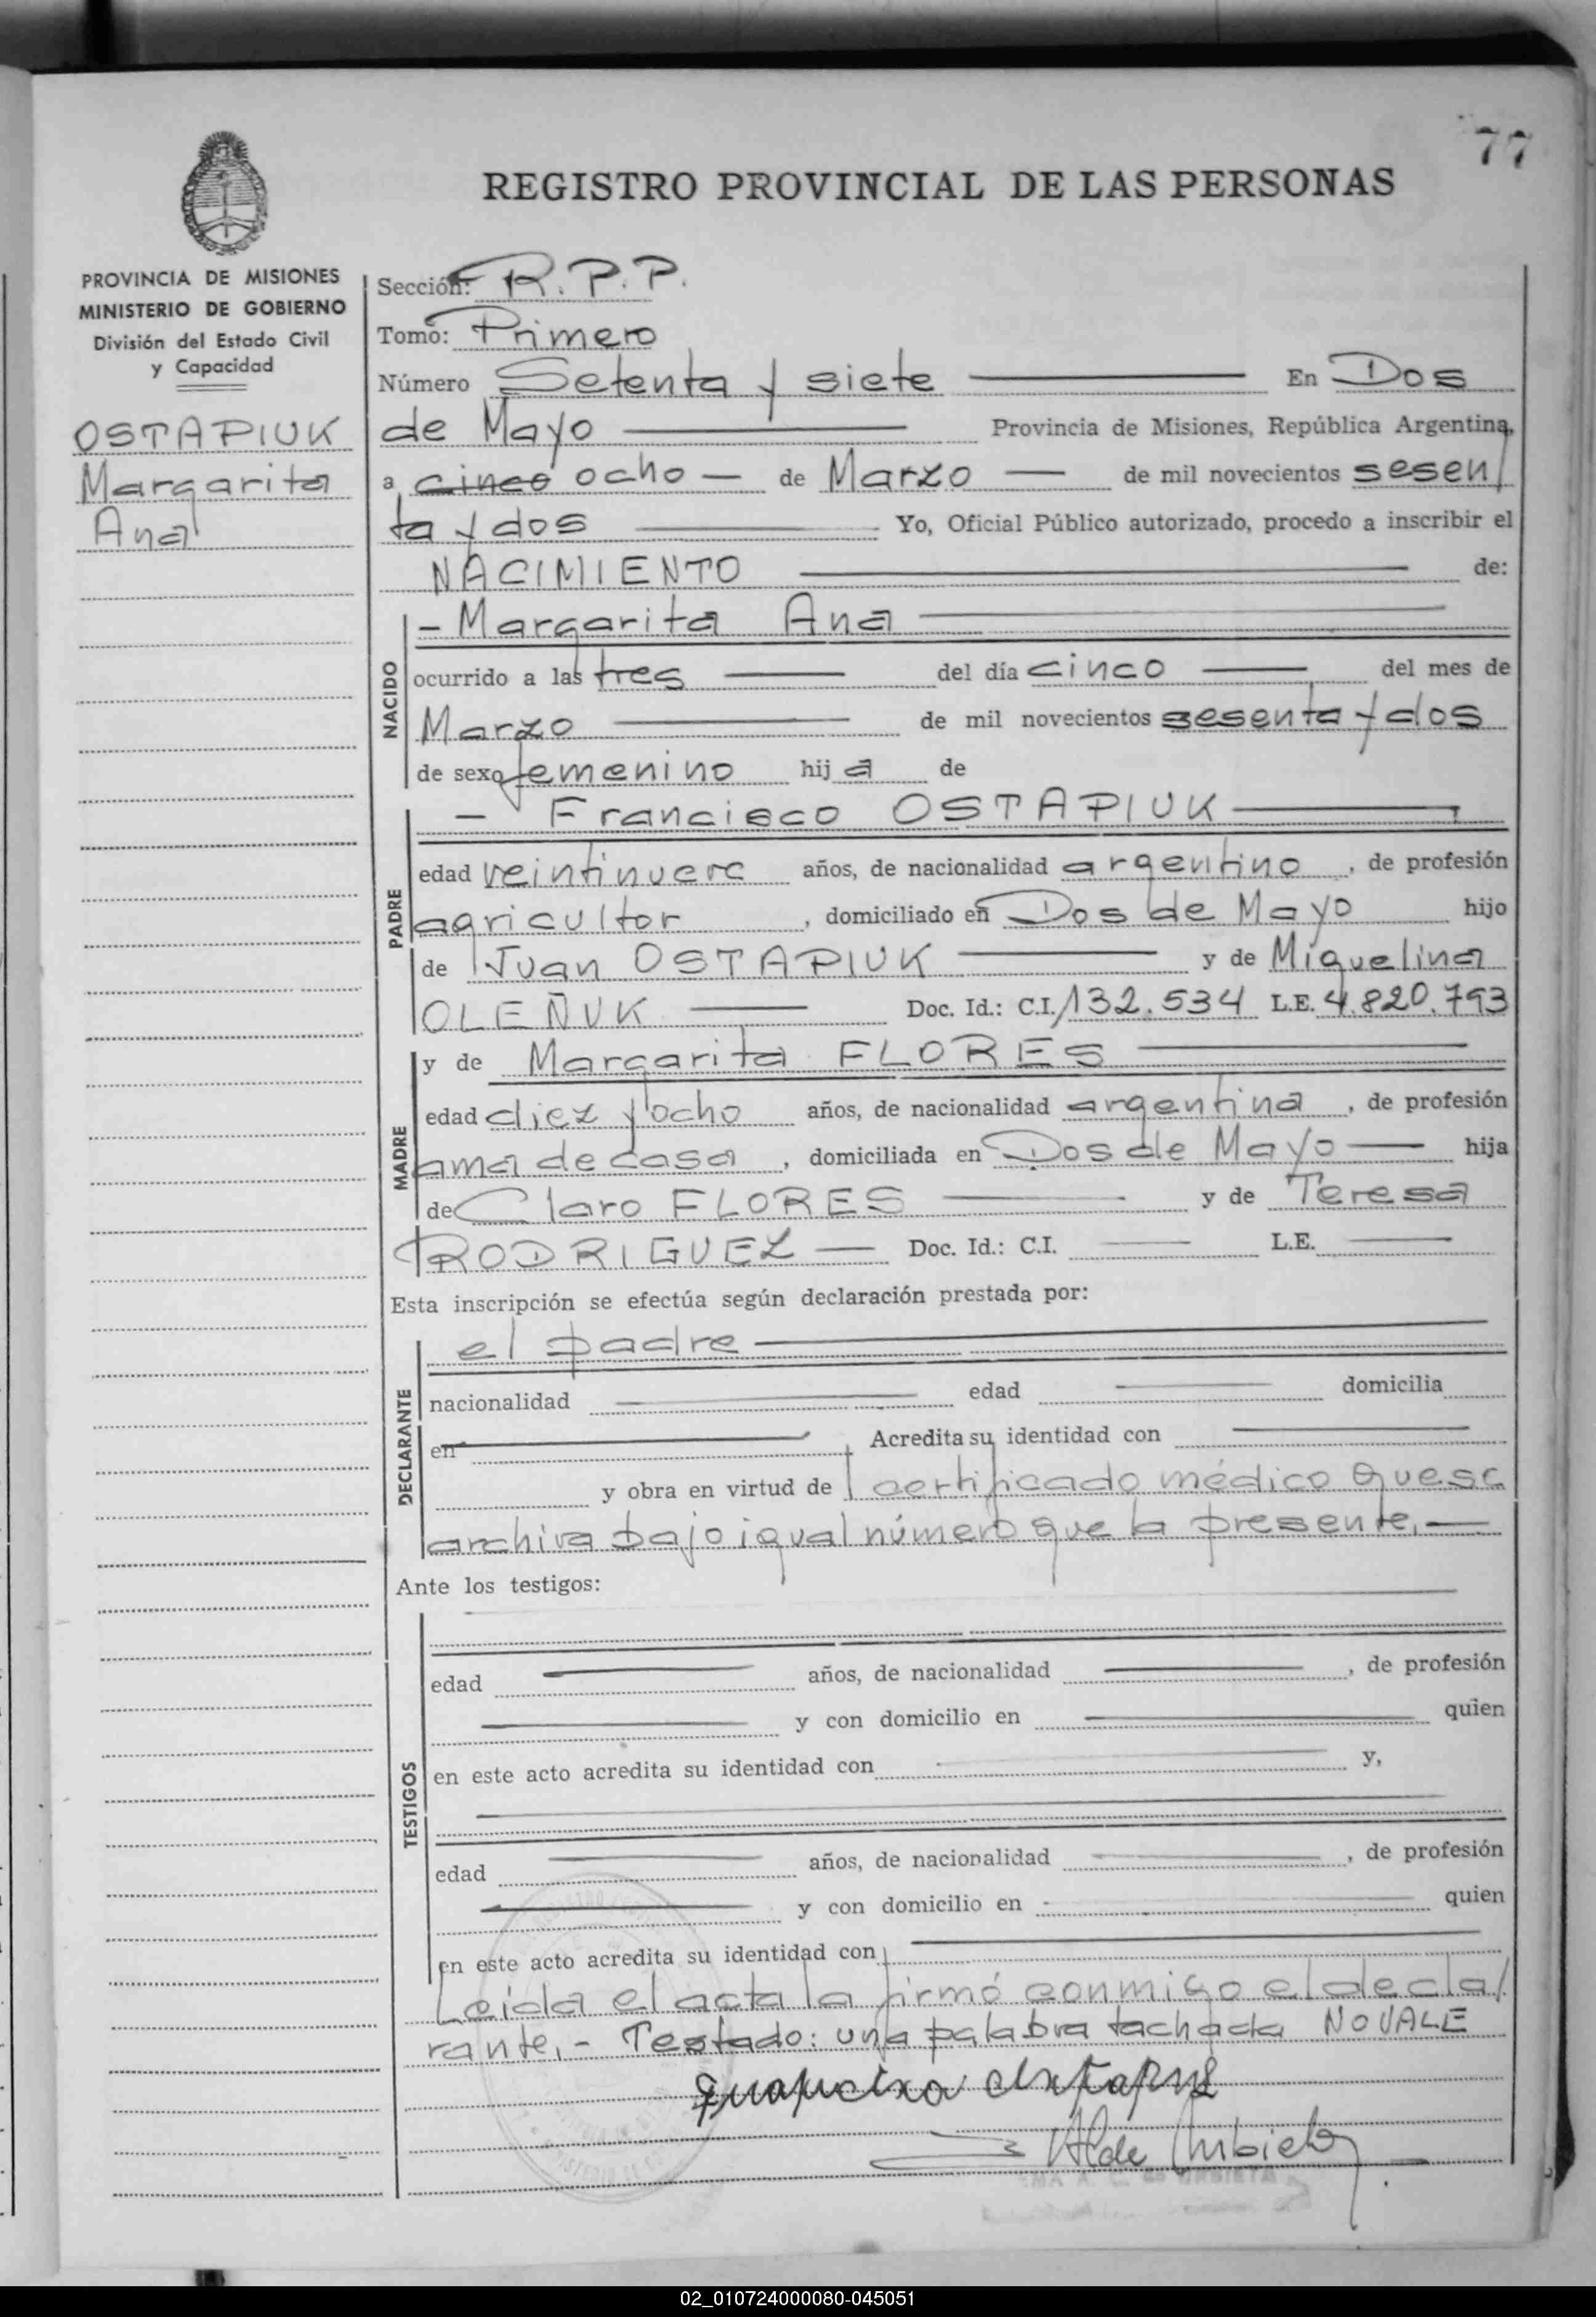 77
REGISTRO PROVINCIAL DE LAS PERSONAS
PROVINCIA DE MISIONES
MINISTERIO DE GOBIERNO
División del Estado Civil
y Capacidad
OSTAPIUK
Margarita
Ana
Sección: R.P.P.
Tomo: Primero
Número Setenta y siete En Dos
de Mayo Provincia de Misiones, República Argentina,
a cinco ocho — de Marzo — de mil novecientos sesen/
ta y dos Yo, Oficial Público autorizado, procedo a inscribir el
NACIMIENTO de:
NACIDO
- Margarita Ana
ocurrido a las tres — del día cinco — del mes de
Marzo — de mil novecientos sesenta y dos
de sexo femenino hija de
PADRE
- Francisco OSTAPIUK
edad veintinueve años, de nacionalidad argentino, de profesión
agricultor, domiciliado en Dos de Mayo hijo
de Juan OSTAPIUK — y de Miguelina
OLEÑUK — Doc. Id.: C.I. 132.534 L.E. 4.820.793
MADRE
y de Margarita FLORES
edad diez y ocho años, de nacionalidad argentina, de profesión
ama de casa, domiciliada en Dos de Mayo — hija
de Claro FLORES — y de Teresa
RODRIGUEZ — Doc. Id.: C.I. — L.E. —
Esta inscripción se efectúa según declaración prestada por:
DECLARANTE
el padre
nacionalidad — edad — domicilia
en — Acredita su identidad con —
y obra en virtud de certificado médico que se
archiva bajo igual número que la presente.—
Ante los testigos:
TESTIGOS
edad — años, de nacionalidad —, de profesión
— y con domicilio en — quien
en este acto acredita su identidad con — y,
edad — años, de nacionalidad —, de profesión
— y con domicilio en — quien
en este acto acredita su identidad con —
Leida el acta la firmó conmigo el decla/
rante.- Testado: una palabra tachada NO VALE
02_010724000080-045051